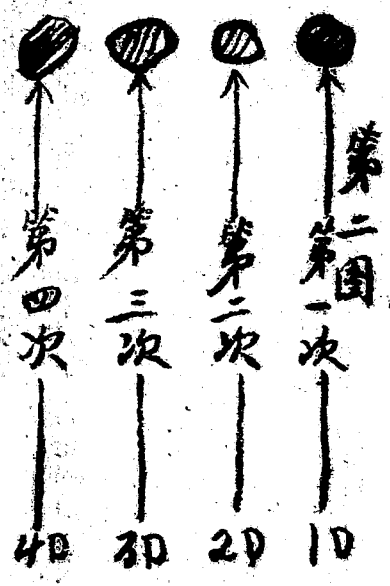 第二圖
第一次
1D
第二次
2D
第三次
3D
第四次
4D